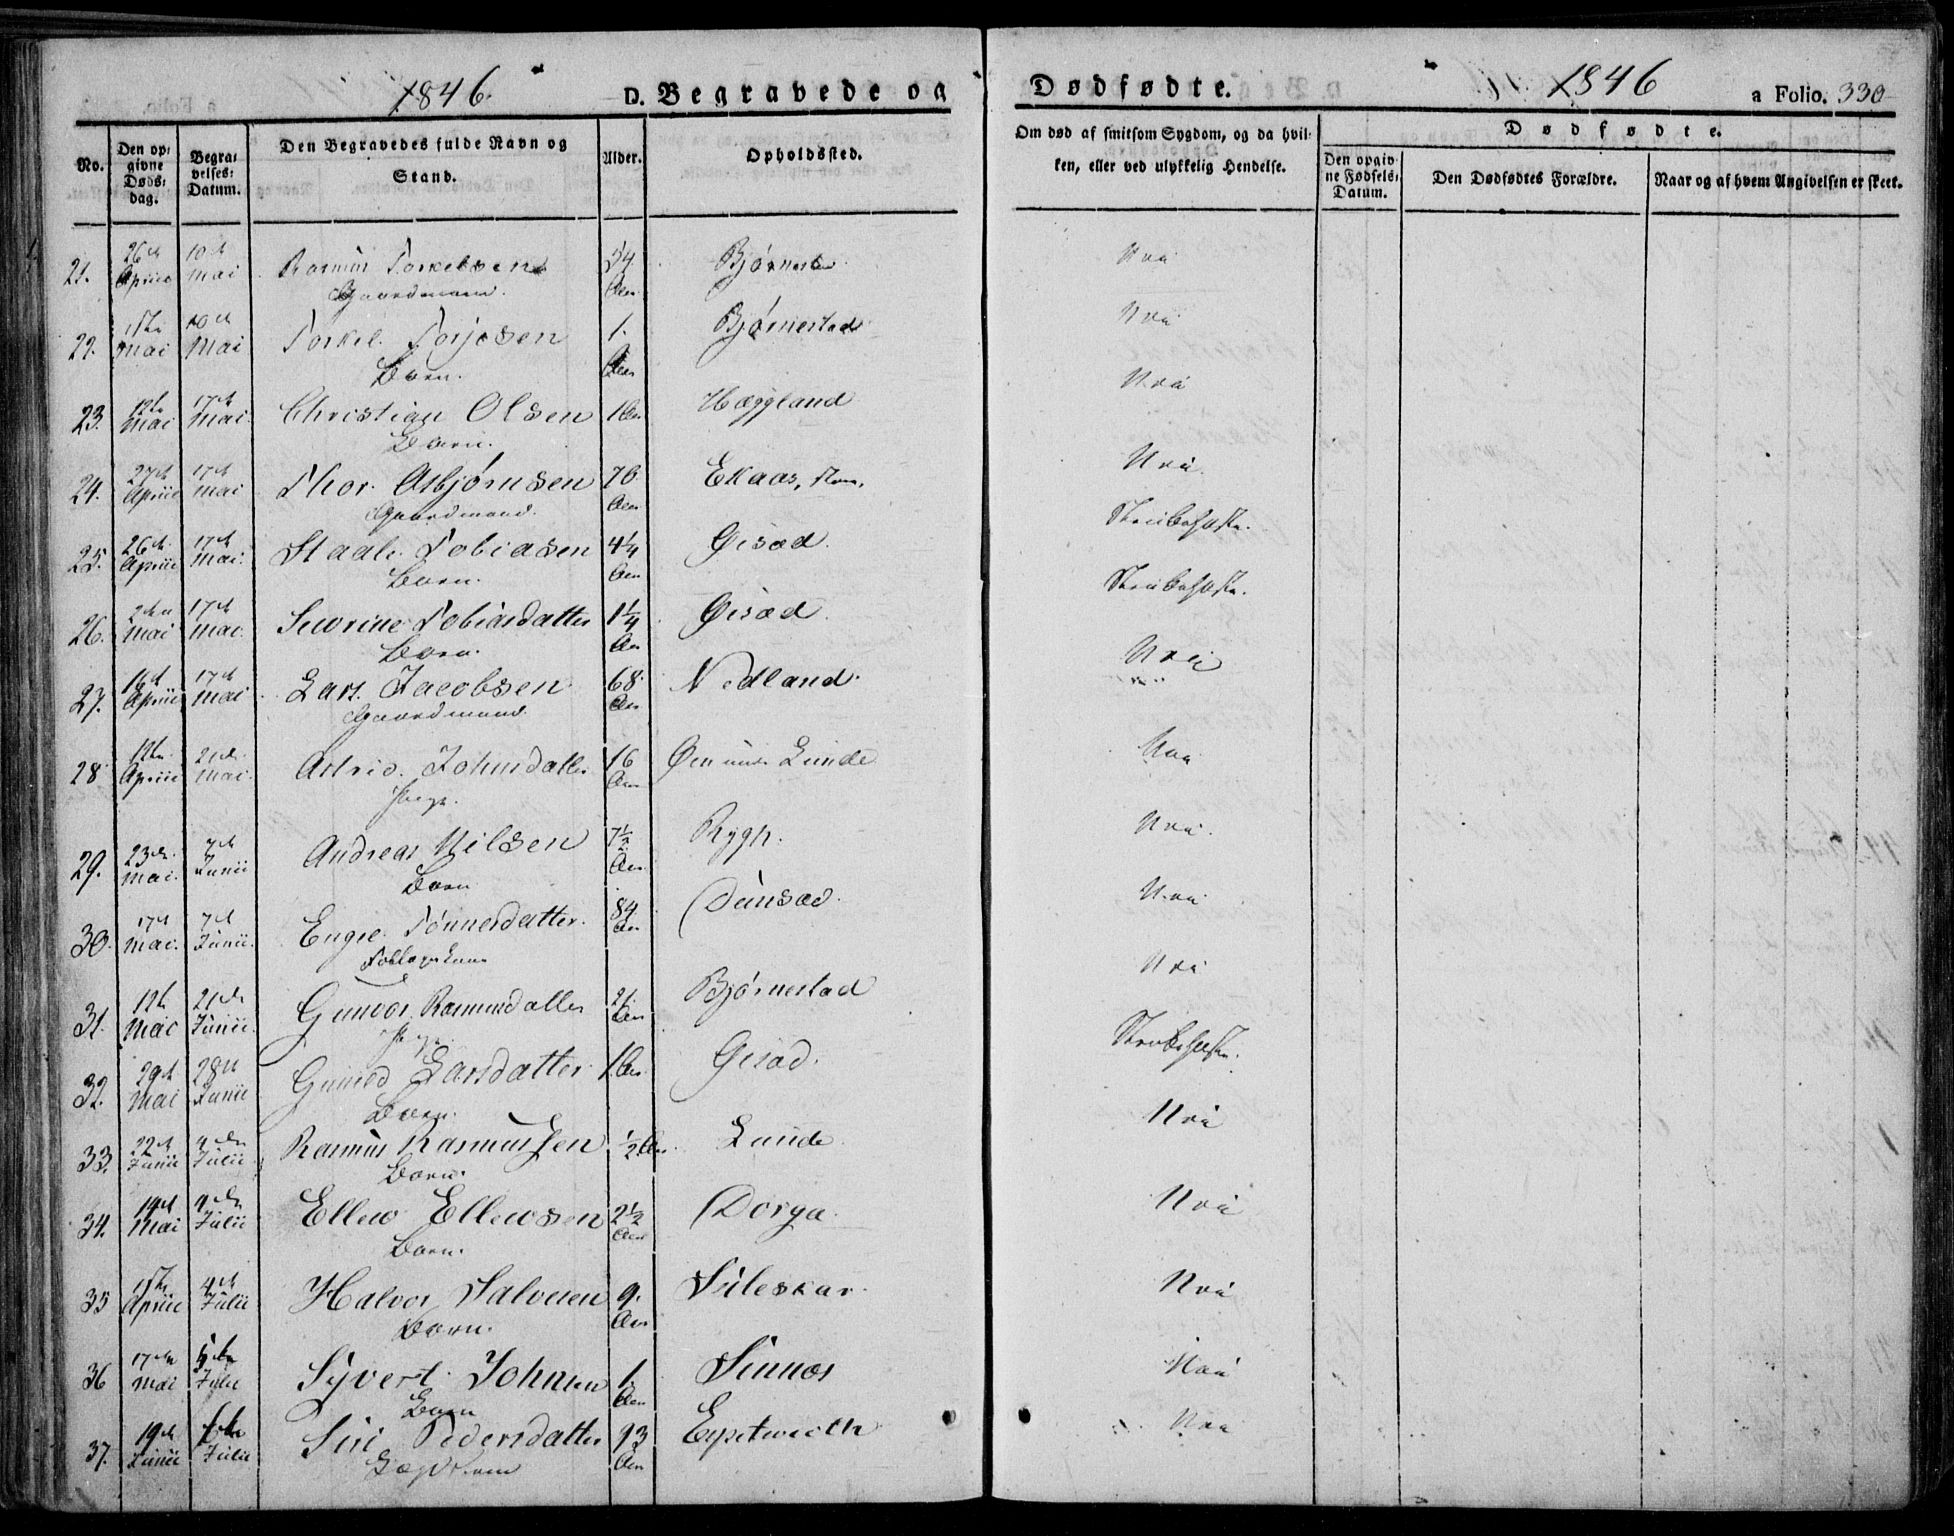 1846. D. Begravede og Dødfødte. 1846 a Folio. 330
No. Den opgivne Dødsdag. Begravelses: Datum. Den Begravedes fulde Navn og Stand. Alder. Opholdssted. Om død af smitsom Sygdom, og da hvilken, eller ved ulykkelig Hendelse. Dødfødte. Den opgivne Fødsels: Datum. Den Dødfødtes Forældre. Naar og af hvem Angivelsen er skeet.
21. 26de April 10de Mai Rasmus Torkelsen 54 Aar Bjørnestad Nei
Gaardmand.
22. Mai 10de Mai Torkel Torjesen 1. Aar Bjørnestad Nei
Barn.
23. 12te Mai 17de Mai Christian Olsen 1 Aar Hæggland Nei
Barn.
24. 27de April 17de Mai Thor Asbjørnsen 76 Aar Ekaas, Nei
Gaardmand.
25. 26de April 17de Mai Staale Tobiasen 4¼ Aar Gisæd. Strubehoste.
Barn.
26. 2den Mai 17de Mai Severine Tobiasdatter 1¼ Aar Gisæd. Strubehoste.
Barn.
27. 16de April 17de Mai Lars Jacobsen 68 Aar Nedland. Nei
Gaardmand.
28 12te April 21de Mai Astrid Johnsdatter 16 Aar Øen under Lunde Nei
Pige.
29. 23de Mai. 7de Junii Andreas Nilsen 7½ Aar Rygh. Nei.
Barn
30. 17de Mai. 7de Junii. Engle Tønnesdatter. 84 Aar Dunsæd. Nei
31. 12te Mai 21de Junii. Gunvor Rasmusdatter 21. Aar Bjørnestad Nei
Pige
32. 29de Mai 28de Junii Gunild Larsdatter 1. Aar Gisæd. Strubehoste.
Barn.
33. 22de Junii 4de Julii Rasmus Rasmussen ½ Aar. Lunde Nei
Barn.
34. 14de Mai 4de Julii Ellew Ellewsen 2½ Aar Dorga Nei
Barn.
35 15te April 4de Julii Halvor Salvesen 9. Aar Sileskar. Nei
Barn.
36 17de Mai 5te Julii Syvert Johnsen 1. Aar Sinnes Nei
Barn
37. 19de Junii Julii Siri Pedersdatter 93 Aar Nei